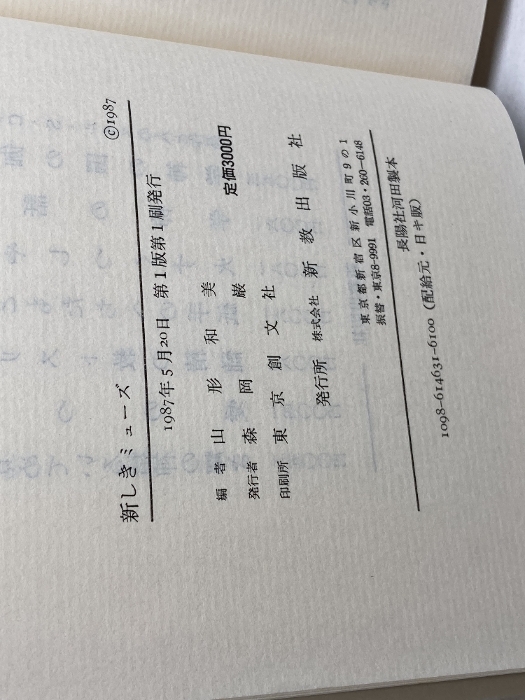 新しきミューズ
©1987
1987年5月20日 第1版第1刷発行
定価3000円
編者 山形和美
発行者 森岡巌
印刷所 東京創文社
発行所 株式会社 新教出版社
東京都新宿区新小川町9の1
振替・東京8-9991 電話03・260-6148
長陽社河田製本
1098-614631-6100（配給元・日キ販）